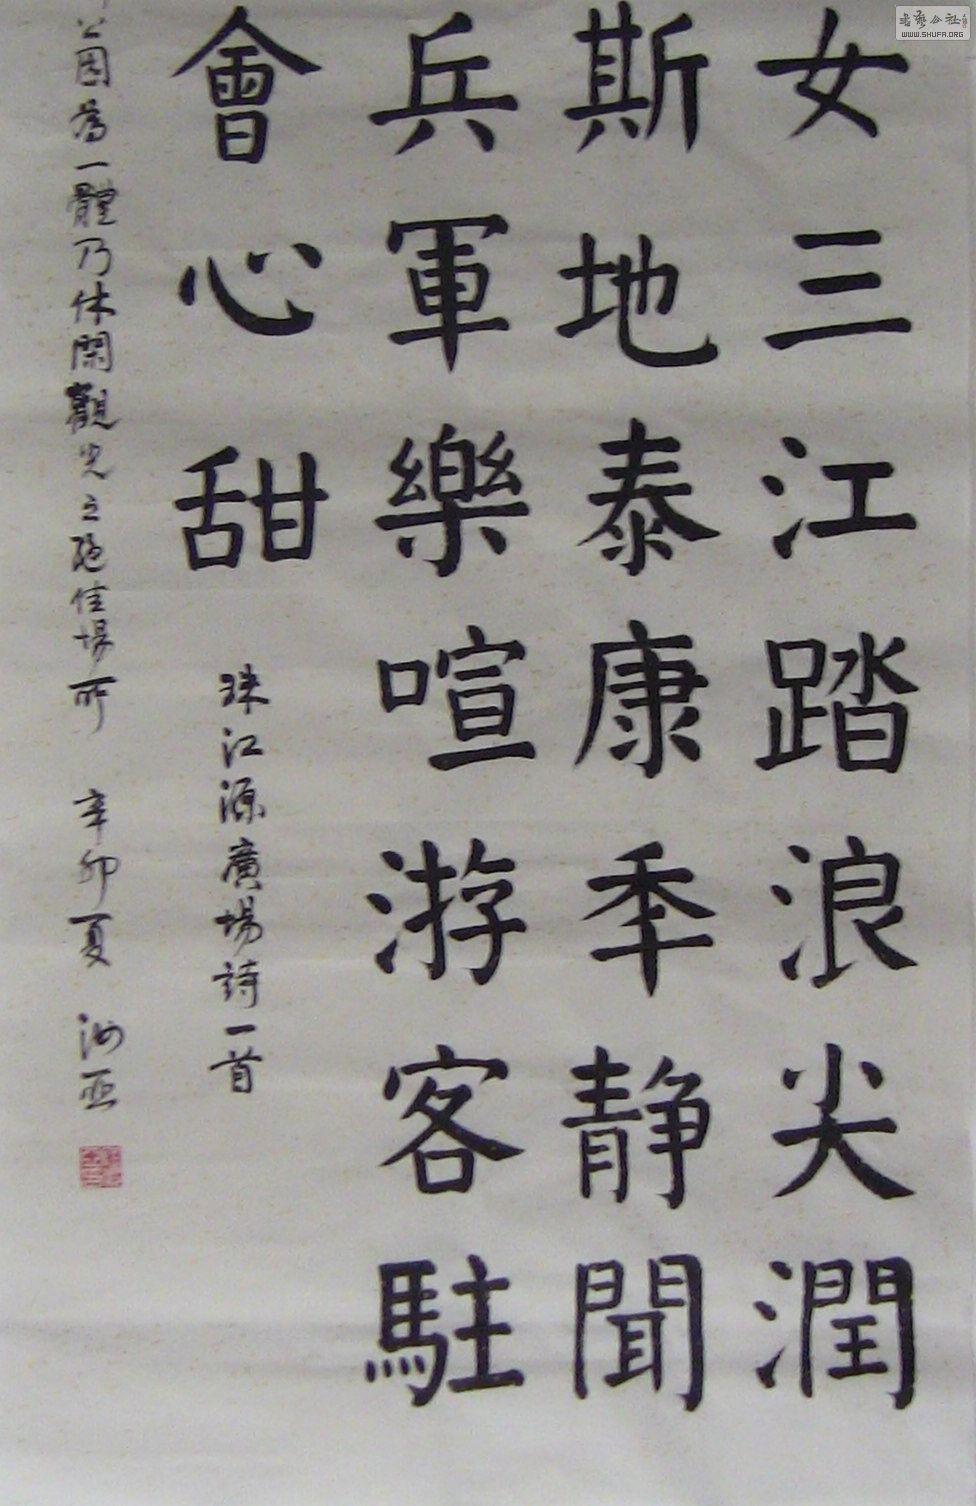 女三江踏浪尖潤
斯地泰康年静聞
兵軍樂喧游客駐
會心甜
珠江源廣場詩一首
公園為一體乃休閑觀光之絕佳場所 辛卯夏
WWW.SHUFA.ORG